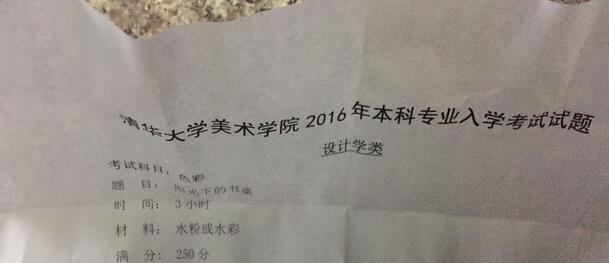 清华大学美术学院2016年本科专业入学考试试题
设计学类
考试科目：色彩
题 目：阳光下的书桌
时 间：3小时
材 料：水粉或水彩
满 分：250分